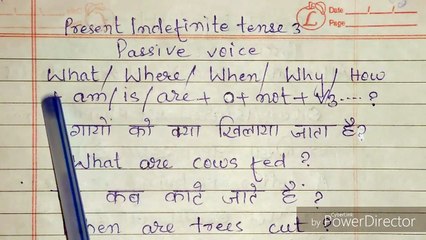 Date
Page
Present Indefinite tense 3
Passive voice
What / Where / When / Why / How
+ am / is / are + O + not + V3 .... ?
गायों को क्या खिलाया जाता है?
What are cows fed ?
कब काटे जाते हैं ?
When are trees cut ?
by PowerDirector